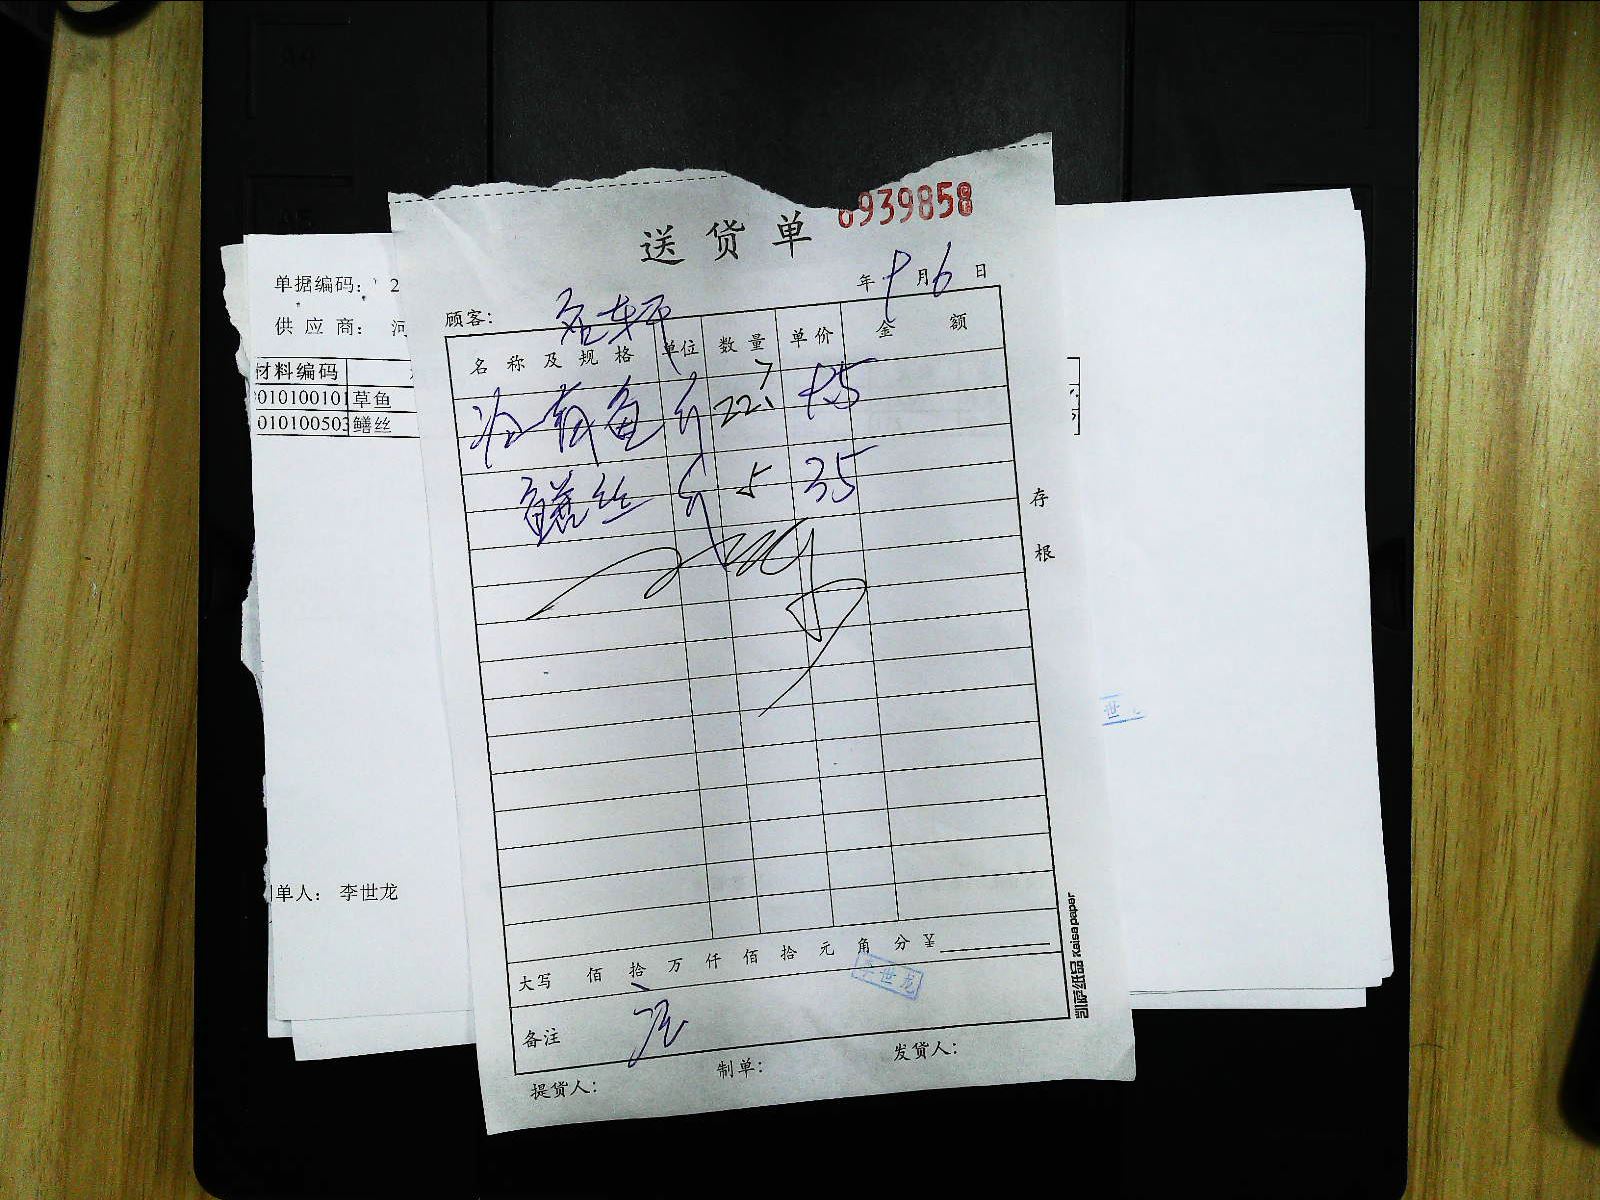 6939858
送货单
年 9 月 6 日
顾客:
名称及规格 单位 数量 单价 金额
鱼 斤 22.7
鳝丝 斤 5 35
存根
大写 佰 拾 万 仟 佰 拾 元 角 分 ¥
李世龙
备注
提货人: 制单: 发货人:
凯萨纸品 Kaisa paper
单据编码: 2
供应商: 河
材料编码
010100101 草鱼
010100503 鳝丝
单人: 李世龙
世